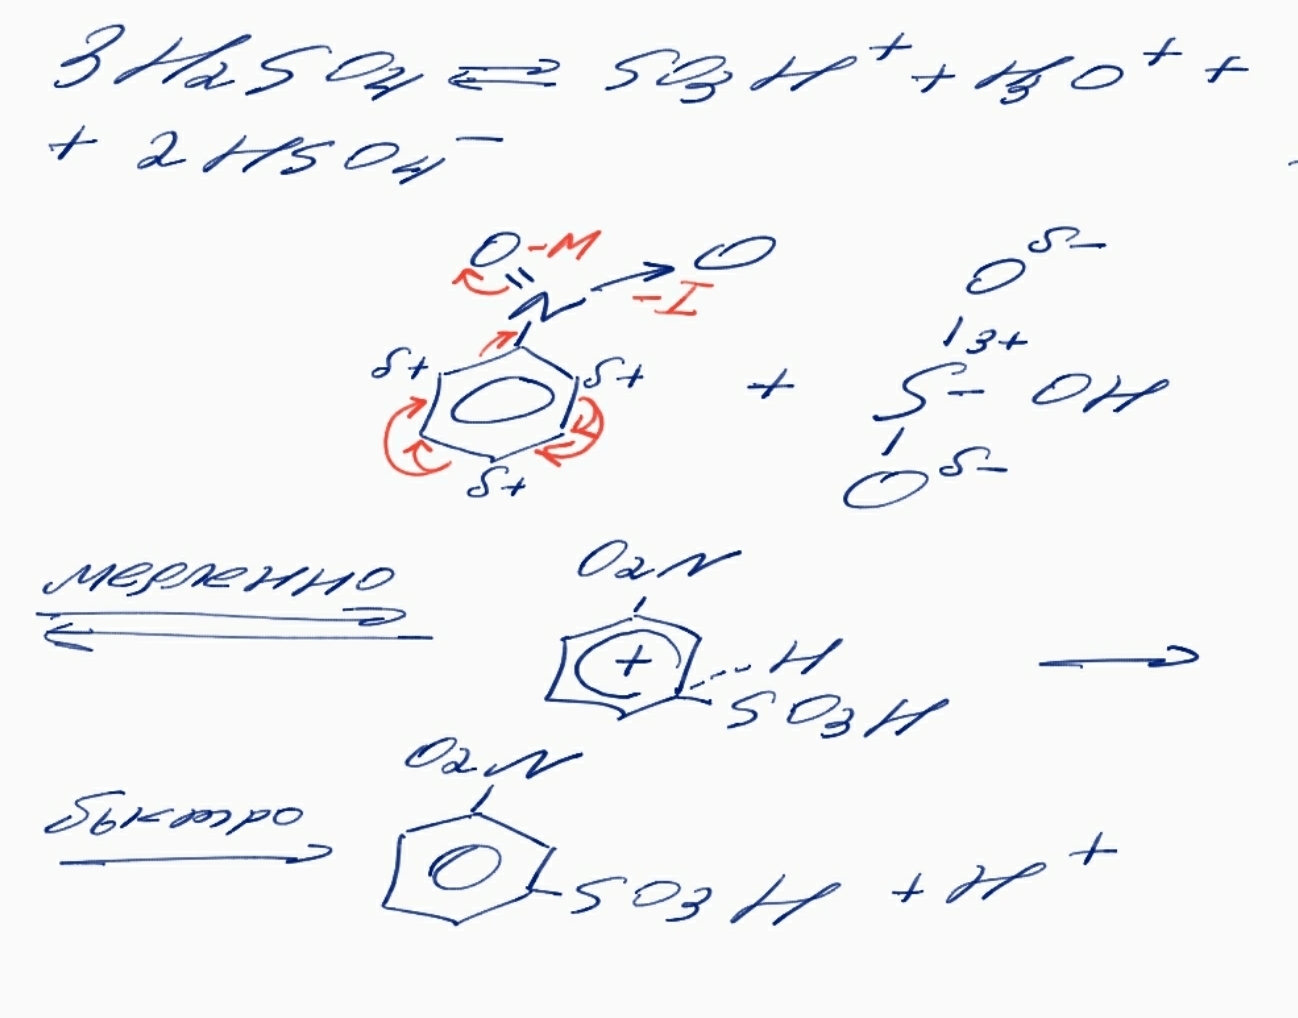 3H₂SO₄ ⇌ SO₃H⁺ + H₃O⁺ +
+ 2HSO₄⁻
O -M O δ-
N -I O
δ+ δ+ + S³⁺ - OH
δ+ O δ-
медленно O₂N
+ H
SO₃H
O₂N
быстро
SO₃H + H⁺